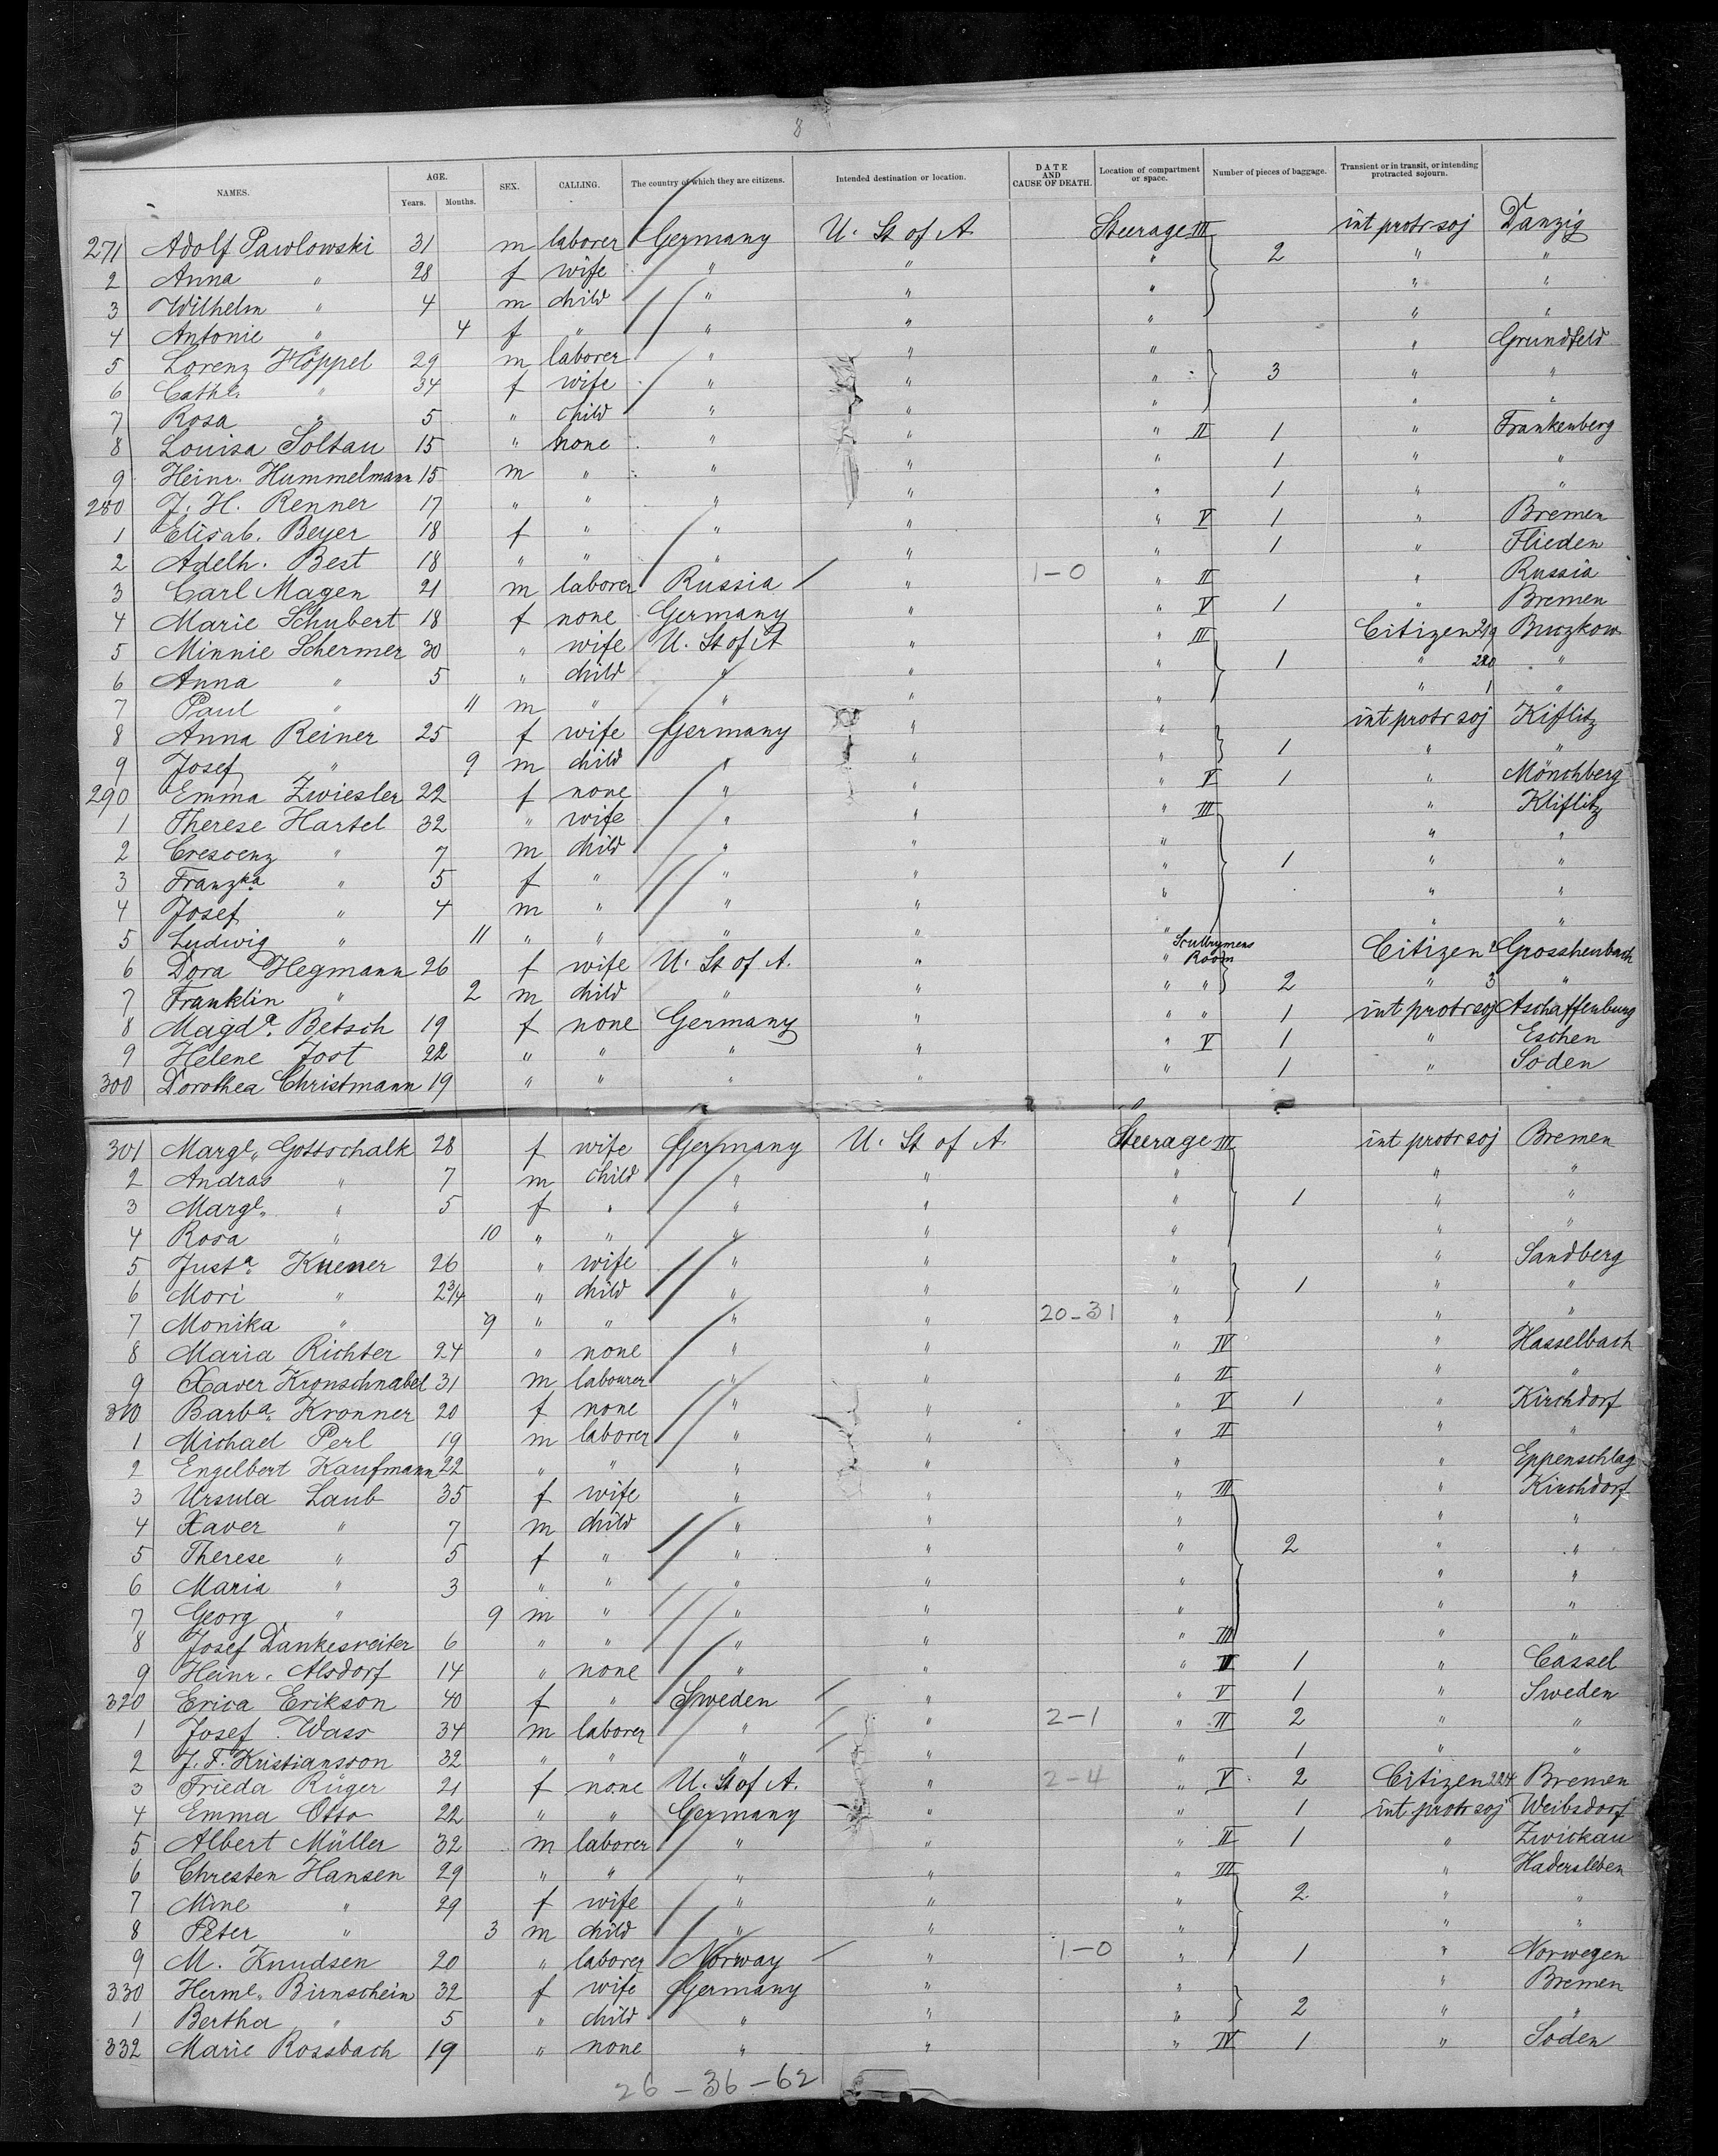 8
NAMES. AGE. Years. Months. SEX. CALLING. The country of which they are citizens. Intended destination or location. DATE AND CAUSE OF DEATH. Location of compartment or space. Number of pieces of baggage. Transient or in transit, or intending protracted sojourn.
271 Adolf Pawlowski 31 m laborer Germany U. St of A Steerage III int protr soj Danzig
2 Anna " 28 f wife " " " 2 " "
3 Wilhelm " 4 m child " " " " "
4 Antonie " 4 f " " " " " "
5 Lorenz Höppel 29 m laborer " " " " Grundfeld
6 Cathe. " 34 f wife " " " 3 " "
7 Rosa " 5 " child " " " " "
8 Louisa Soltau 15 " none " " " II 1 " Frankenberg
9 Heinr. Hummelmann 15 m " " " " 1 " "
280 J. H. Renner 17 " " " " " 1 " "
1 Elisab. Beyer 18 f " " " " V 1 " Bremen
2 Adelh. Best 18 " " " " " 1 " Flieden
3 Carl Magen 21 m laborer Russia " 1-0 " II " Russia
4 Marie Schubert 18 f none Germany " " V 1 " Bremen
5 Minnie Schermer 30 " wife U. St of A " " III Citizen 219 Buczkow
6 Anna " 5 " child " " " 1 " 220 "
7 Paul " 11 m " " " " " 1 "
8 Anna Reiner 25 f wife Germany " " int protr soj Kiflitz
9 Josef " 9 m child " " " 1 " "
290 Emma Zwiesler 22 f none " " " V 1 " Mönchberg
1 Therese Hartel 32 " wife " " " III " Kliflitz
2 Crescenz " 7 m child " " " " "
3 Franzka " 5 f " " " " 1 " "
4 Josef " 4 m " " " " " "
5 Ludwig " 11 " " " " " " "
6 Dora Hegmann 26 f wife U. St of A. " " Room Citizen 2 Grosshenbach
7 Franklin " 2 m child " " " " 2 " 3 "
8 Magda. Betsch 19 f none Germany " " " 1 int protr soj Aschaffenburg
9 Helene Jost 22 " " " " " V 1 " Eschen
300 Dorothea Christmann 19 " " " " " 1 " Soden
301 Margl. Gottschalk 28 f wife Germany U. St of A. Steerage III int protr soj Bremen
2 Andras " 7 m child " " " " "
3 Margl. " 5 f " " " " 1 " "
4 Rosa " 10 " " " " " " "
5 Justa. Knener 26 " wife " " " " Sandberg
6 Mori " 2 3/4 " child " " " 1 " "
7 Monika " 9 " " " " 20-31 " " "
8 Maria Richter 24 " none " " " IV " Hasselbach
9 Xaver Kronschnabel 31 m labourer " " " II " "
310 Barba. Kronner 20 f none " " " V 1 " Kirchdorf
1 Michael Perl 19 m laborer " " " II " "
2 Engelbert Kaufmann 22 " " " " " " Eppenschlag
3 Ursula Laub 35 f wife " " " III " Kirchdorf
4 Xaver " 7 m child " " " " "
5 Therese " 5 f " " " " 2 " "
6 Maria " 3 " " " " " " "
7 Georg " 9 m " " " " " "
8 Josef Dankesreiter 6 " " " " " III " "
9 Heinr. Alsdorf 14 " none " " " II 1 " Cassel
320 Erica Erikson 40 f " Sweden " " V 1 " Sweden
1 Josef Wass 34 m laborer " " 2-1 " II 2 " "
2 J. F. Kristiansson 32 " " " " " 1 " "
3 Frieda Rüger 21 f none U. St of A. " 2-4 " V 2 Citizen 224 Bremen
4 Emma Otto 22 " " Germany " " 1 int protr soj Weibsdorf
5 Albert Müller 32 m laborer " " " II 1 " Zwickau
6 Chresten Hansen 29 " " " " " III " Hadersleben
7 Mine " 29 f wife " " " 2 " "
8 Peter " 3 m child " " " " "
9 M. Knudsen 20 " laborer Norway " 1-0 " 1 " Norwegen
330 Herml. Birnschein 32 f wife Germany " " " Bremen
1 Bertha " 5 " child " " " 2 " "
332 Marie Rossbach 19 " none " " " IV 1 " Soden
26-36-62